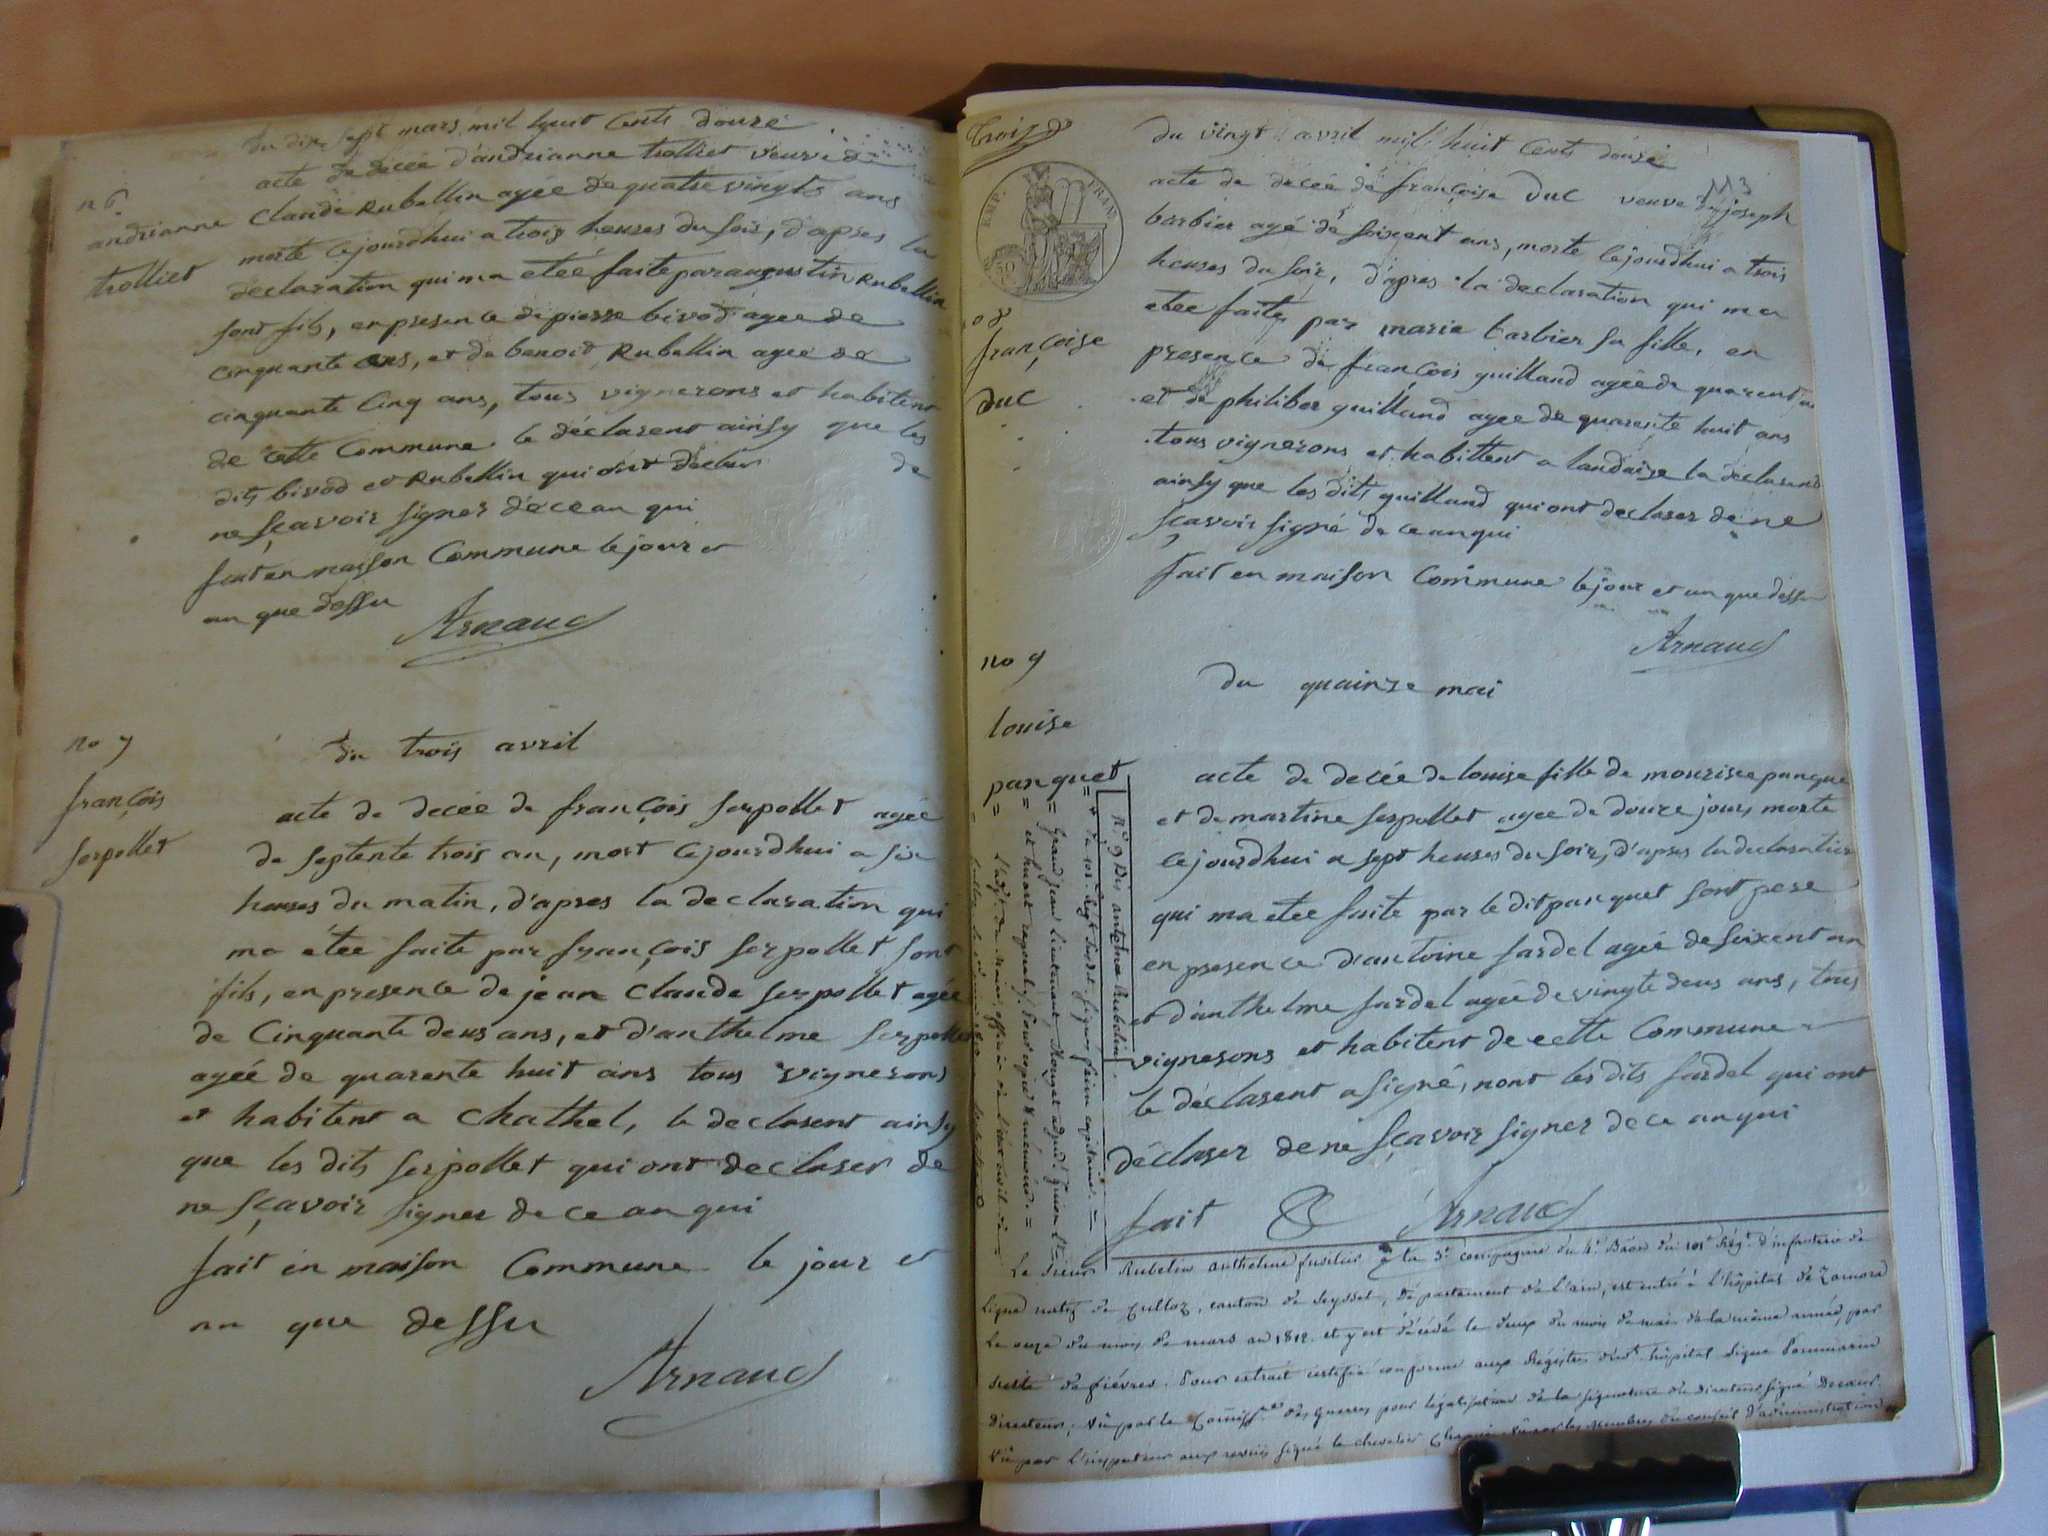 du dix sept mars mil huit Cents douze
n 6.
andrianne
trolliet
acte de decée d'andrianne trolliet veuve de
Claude Rubellin agée de quatre vingts ans
morte cejourdhui a trois heuses du soir, d'apres la
declaration qui ma etéé faite par augustin Rubellin
sont fils, en presence de piesse bivod agee de
cinquante ans, et de benoit Rubellin agée de
cinquante Cinq ans, tous vignerons et habitent
de cette Commune le déclarent ainsy que les
dits bivod et Rubellin qui ont déclar de
ne sçavoir signer de ce an qui
fait en maison Commune le jour et
an que dessu
Arnaud
no 7
françois
serpollet
du trois avril
acte de decée de françois serpollet agée
de septente trois an, mort cejourdhui a six
heuses du matin, d'apres la declaration qui
ma étée faite par françois serpollet sont
fils, en presence de jean Claude serpollet agée
de Cinquante deus ans, et d'anthelme serpollet
agée de quarente huit ans tous vignerons
et habitent a Chathel, le declarent ainsy
que les dits serpollet qui ont declaser de
ne sçavoir signer de ce an qui
fait en maison Commune le jour et
an que dessu
Arnaud
EMP. FRAN.
50
113
du vingt avril mil huit Cents douze
françoise
duc
acte de decée de françoise duc veuve de joseph
barbier agé de soixent ans, morte cejourdhui a trois
heuses du soir, d'apres la declaration qui ma
etee faite par marie barbier sa fille, en
presence de françois guilland agée de quarent
et de philiber guilland agee de quarente huit ans
tous vignerons et habittent a landaize la declarent
ainsy que les dits guilland qui ont declaser de ne
sçavoir signé de ce an qui
fait en maison Commune le jour et an que dessu
Arnaud
no 9
louise
panquet
du quainze mai
acte de decée de louise fille de mourise panque
et de martine serpollet agee de douze jours, morte
cejourdhui a sept heuses du soir, d'apres la declaration
qui ma etee faite par le dit panquet sont pere
en presence d'antoine fardel agée de soixent an
et d'anthelme fardel agée de vingte deus ans, tous
vignerons et habitent de cette Commune
le déclasent a signé, nont les dits fardel qui ont
déclaser de ne sçavoir signer de ce an qui
fait &
Arnaud
Le Sieur Rubelin anthelme fusilier à la 3e compagnie du 4e Baon du 101e Régt d'infanterie de
Ligne natif de Culloz, canton de Seyssel, département de l'ain, est entré à l'hôpital de Zamora
Le onze du mois de mars an 1812. et y est décédé le deux du mois de mai de la même année, par
suite de fièvres. Pour extrait certifié conforme aux Régistres dudt hôpital signé
directeur, Vû par le Commissre des Guerres pour légalisation de la signature du directeur signé
Vû par L'inspecteur aux revues signé le chevalier les membres du conseil d'administration
du 101e Régt
Grand jean Lieutenant,
n.° 9 Bis anthelme Rubelin.